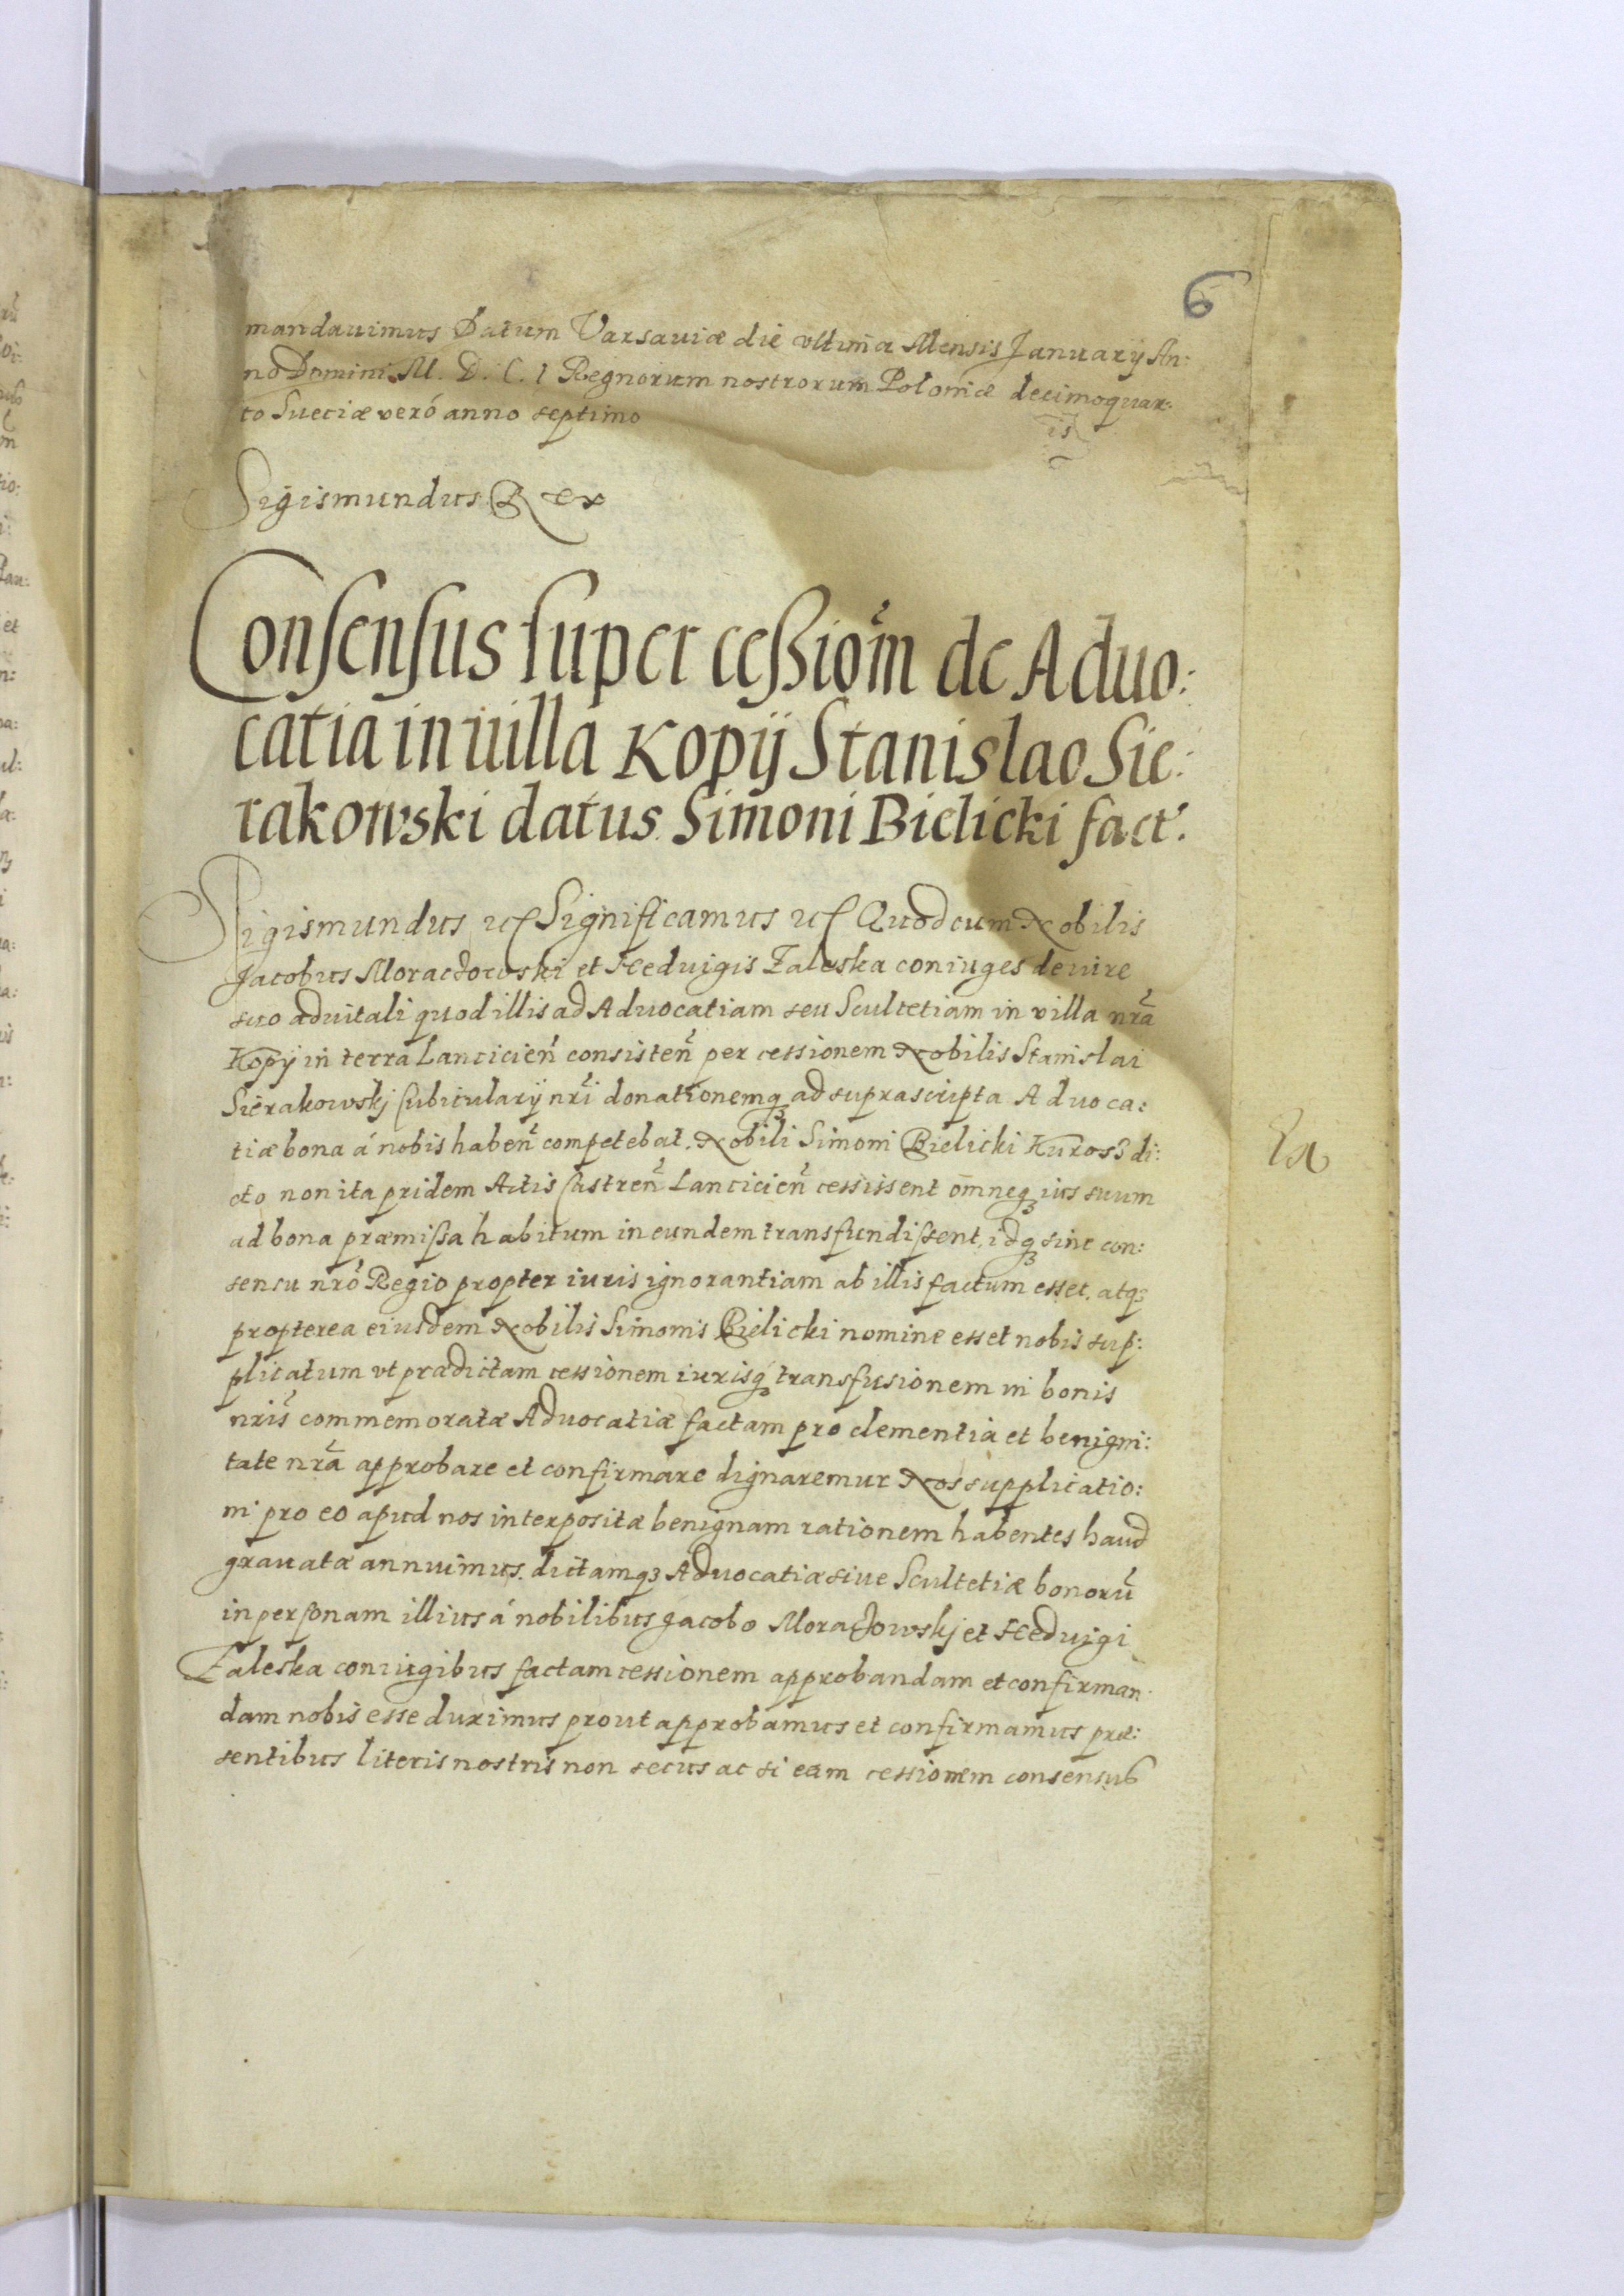 6
mandauimus Datum Varsauiæ die vltima Mensis January An:
no Domini M. D. C. I Regnorum nostrorum Poloniæ decimoquar:
to Sueciæ veró anno septimo
Sigismundus Rex
Consensus super cessiom̃ de Aduo:
catia in uilla Kopÿ Stanislao Sie:
rakowski datus Simoni Bielicki fact.
Sigismundus Significamus Quod cum Nobilis
Jacobus et Heduigis Zaleska coniuges de iure
suo aduitali quod illis ad Aduocatiam seu Scultetiam in villa nrã
Kopÿ in terra Lancicien̄ consisten̄ per cessionem Nobilis Stanislai
Sierakowskj Cubicularÿ nri donationemq3 ad suprascripta Aduoca:
tiæ bona á nobis haben̄ competebat. Nobili Simoni Bielicki di:
cto non ita pridem Actis Castren̄ Lancicien̄ cessissent om̄neq3 ius suum
ad bona præmissa habitum in eundem transfundissent, idq3 sine con:
sensu nrō Regio propter iuris ignorantiam ab illis factum esset, atq3
propterea eiusdem Nobilis Simonis Bielicki nomine esset nobis sup:
plicatum vt prædictam cessionem iurisq3 transfusionem in bonis
nrīs commemoratæ Aduocatiæ factam pro clementia et benigni:
tate nrã approbare et confirmare dignaremur Nos supplicatio:
ni pro eo apud nos interpositæ benignam rationem habentes haud
grauatæ annuimus. dictamq3 Aduocatiæ siue Scultetiæ bonorū
in personam illius á nobilibus Jacobo et Heduigi
Zaleska coniugibus factam cessionem approbandam et confirman
dam nobis esse duximus prout approbamus et confirmamus præ:
sentibus literis nostris non secus ac si eam cessionem consensus